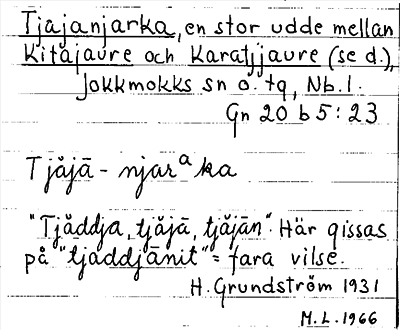 Tjåjanjarka, en stor udde mellan
Kitajaure och Karatjjaure (se d.),
Jokkmokks sn o. tg, Nb. l.
Gn 20 b 5 : 23
Tjåjā - njarᵃka
"Tjåddja, tjåjā, tjåjān". Här gissas
på "tjaddjānit" = fara vilse.
H. Grundström 1931
M. L. 1966